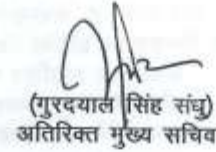 (गुरदयाल सिंह संधु)
अतिरिक्त मुख्य सचिव